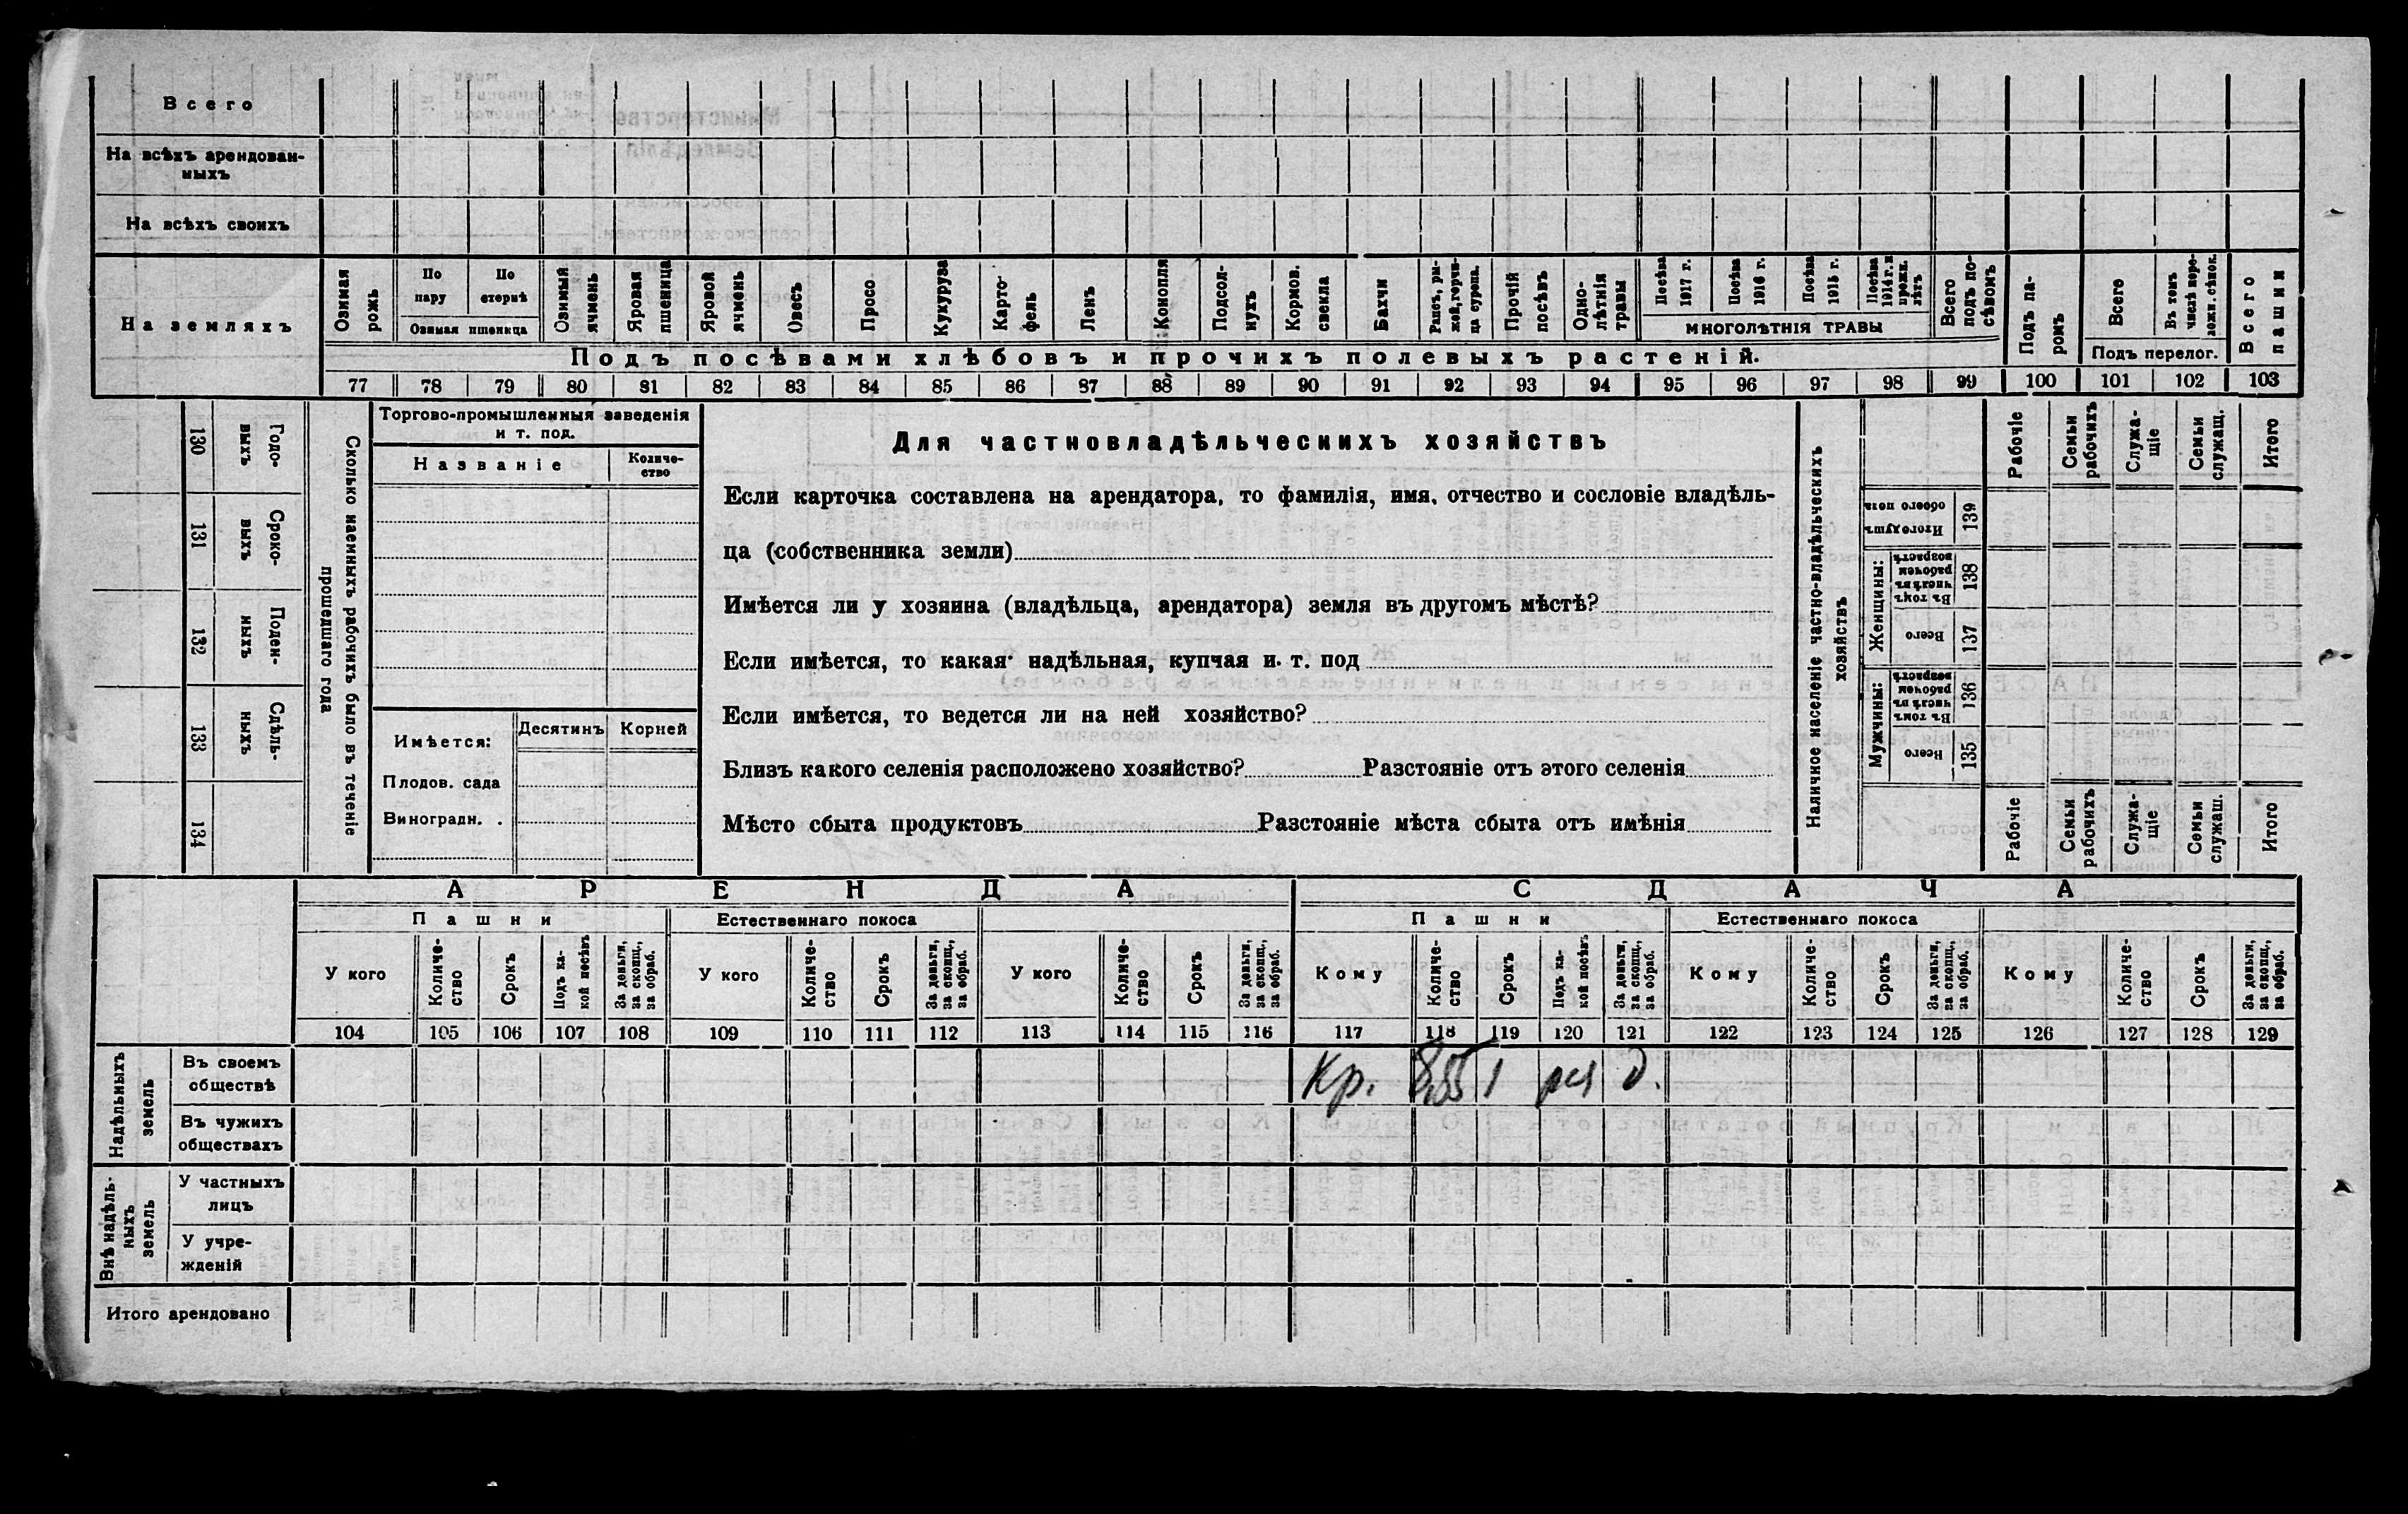 Всего
На всѣхъ арендован-
ныхъ
На всѣхъ своихъ
На земляхъ
Озимая рожь
По пару
По стернѣ
Озимая пшеница
Озимый ячмень
Яровая пшеница
Яровой ячмень
Овесъ
Просо
Кукуруза
Карто-
фель
Ленъ
Конопля
Подсол-
нухъ
Кормов.
свекла
Бахчи
Рапсъ, ры-
жей, горчи-
ца сурепа.
Прочій
посѣвъ
Одно-
лѣтнія
травы
Посѣва
1917 г.
Посѣва
1916 г.
Посѣва
1915 г.
Посѣва
1914 г. и
прежн.
лѣтъ
МНОГОЛѢТНІЯ ТРАВЫ
Всего
подъ по-
сѣвомъ
Подъ па-
ромъ
Всего
Въ томъ
числѣ пере-
ложн. сѣнок.
Подъ перелог.
Всего
пашни
Подъ посѣвами хлѣбовъ и прочихъ полевыхъ растеній.
77 78 79 80 81 82 83 84 85 86 87 88 89 90 91 92 93 94 95 96 97 98 99 100 101 102 103
130 Годо-
выхъ
131 Сроко-
выхъ
132 Поден-
ныхъ
133 Сдѣль-
ныхъ
134
Сколько наемныхъ рабочихъ было въ теченіе
прошедшаго года
Торгово-промышленныя заведенія
и т. под.
Названіе
Количе-
ство
Имѣется:
Десятинъ
Корней
Плодов. сада
Виноградн. .
Для частновладѣльческихъ хозяйствъ
Если карточка составлена на арендатора, то фамилія, имя, отчество и сословіе владѣль-
ца (собственника земли)
Имѣется ли у хозяина (владѣльца, арендатора) земля въ другомъ мѣстѣ?
Если имѣется, то какая· надѣльная, купчая и. т. под
Если имѣется, то ведется ли на ней хозяйство?
Близъ какого селенія расположено хозяйство? Разстояніе отъ этого селенія
Мѣсто сбыта продуктовъ Разстояніе мѣста сбыта отъ имѣнія
Наличное населеніе частно-владѣльческихъ
хозяйствъ
Рабочіе
Семьи
рабочихъ
Служа-
щіе
Семьи
служащ.
Итого
Итого душъ
обоего пола
139
Женщины:
Въ томъ
числѣ въ
рабочем
возрастѣ
138
Всего
137
Мужчины:
Въ томъ
числѣ въ
рабочем
возрастѣ
136
Всего
135
Рабочіе
Семьи
рабочихъ
Служа-
щіе
Семьи
служащ.
Итого
АРЕНДА
СДАЧА
Пашни
Естественнаго покоса
Пашни
Естественнаго покоса
У кого
Количе-
ство
Срокъ
Подъ ка-
кой посѣвъ
За деньги,
за скопщ.,
за обраб.
У кого
Количе-
ство
Срокъ
За деньги,
за скопщ.,
за обраб.
У кого
Количе-
ство
Срокъ
За деньги,
за скопщ.,
за обраб.
Кому
Количе-
ство
Срокъ
Подъ ка-
кой посѣвъ
За деньги,
за скопщ.,
за обраб.
Кому
Количе-
ство
Срокъ
За деньги,
за скопщ.,
за обраб.
Кому
Количе-
ство
Срокъ
За деньги,
за скопщ.,
за обраб.
104 105 106 107 108 109 110 111 112 113 114 115 116 117 118 119 120 121 122 123 124 125 126 127 128 129
Надѣльныхъ
земель
Въ своемъ
обществѣ
Кр. 1 д.
Въ чужихъ
обществахъ
Внѣ надѣль-
ныхъ
земель
У частныхъ
лицъ
У учре-
жденій
Итого арендовано